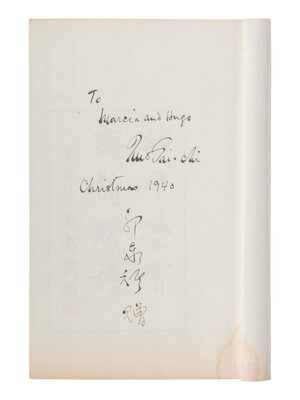 To
Marcia and Hugo
Quo Tai-chi
Christmas 1940
郭泰祺贈